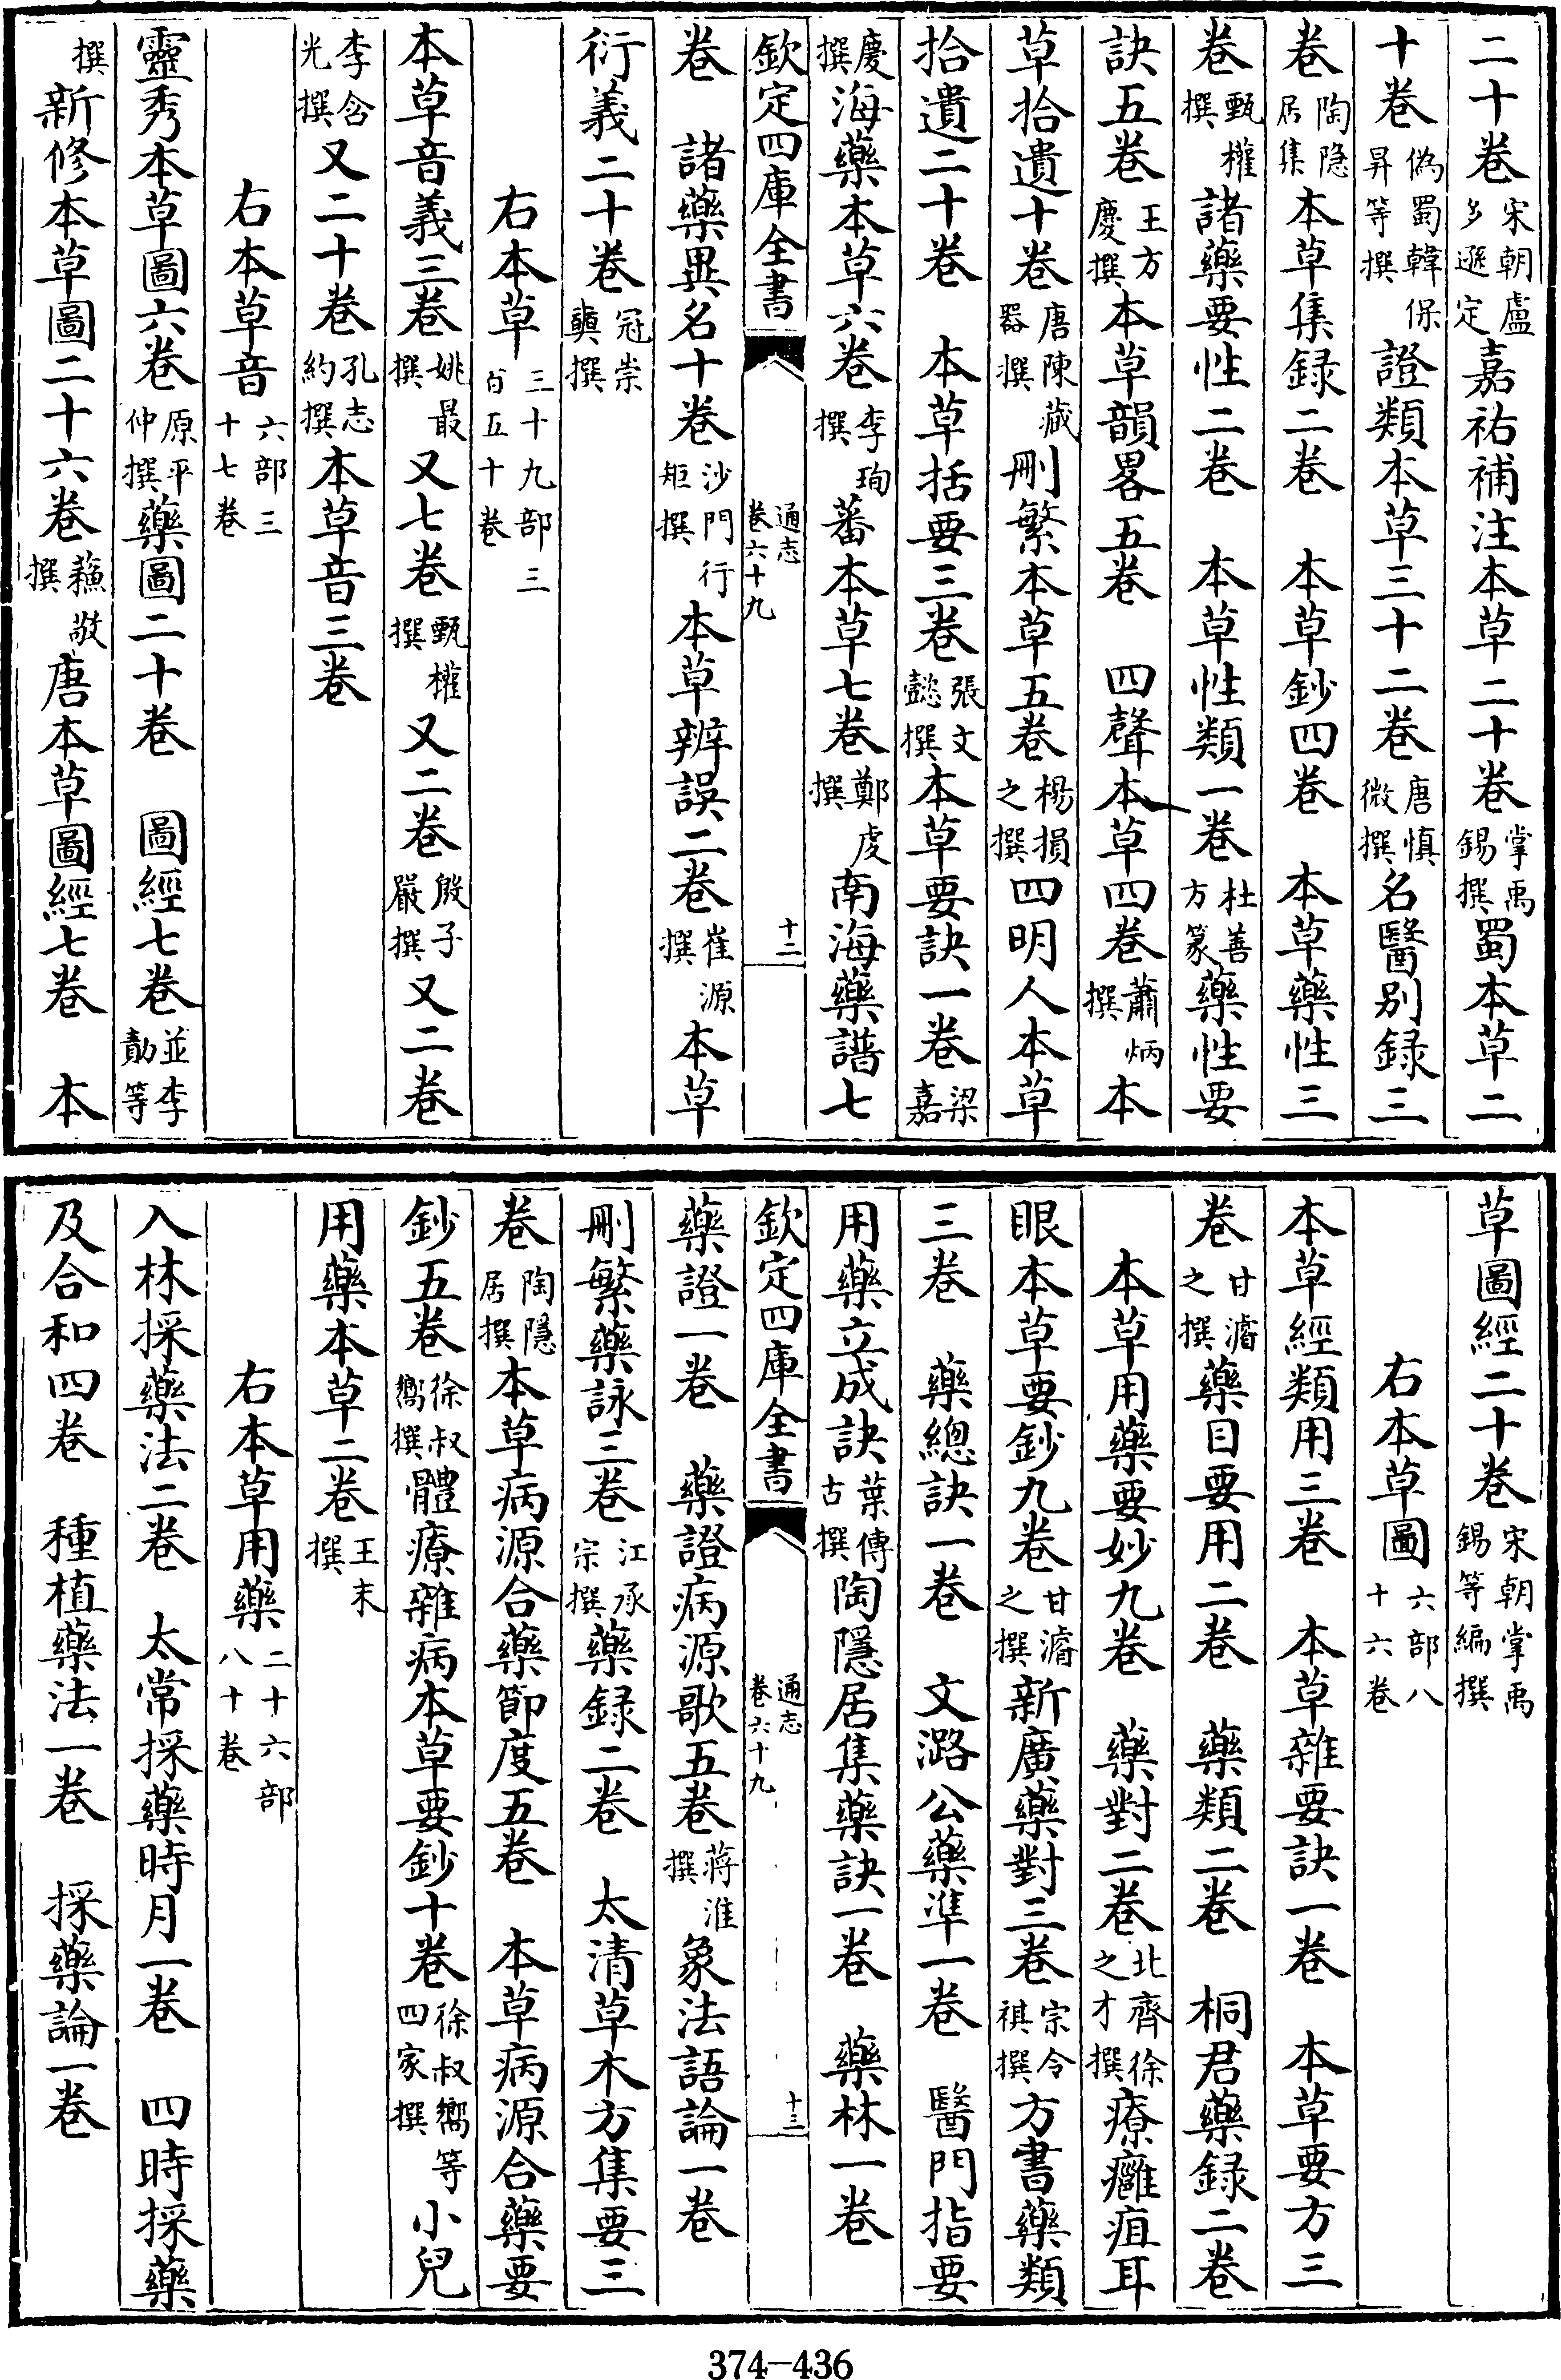 二十卷宋朝盧多遜定嘉祐補注本草二十卷掌禹錫撰蜀本草二
十卷偽蜀韓保昇等撰證類本草三十二卷唐慎微撰名醫别録三
卷陶隐居集本草集録二卷 本草鈔四卷 本草藥性三
卷甄權撰諸藥要性二卷 本草性類一卷杜善方篆藥性要
訣五卷王方慶撰本草韻畧五卷 四聲本草四卷蕭炳撰本
草拾遺十卷唐陳藏器撰刪繁本草五卷楊損之撰四明人本草
拾遺二十卷 本草括要三卷張文懿撰本草要訣一卷梁嘉
慶撰海藥本草六卷李珣撰蕃本草七卷鄭虔撰南海藥譜七
欽定四庫全書 通志卷六十九 十二
卷 諸藥異名十卷沙門行矩撰本草辨誤二卷崔源撰本草
衍義二十卷冦崇奭撰
右本草三十九部三百五十卷
本草音義三卷姚最撰又七卷甄權撰又二卷殷子嚴撰又二卷
李含光撰又二十卷孔志約撰本草音三卷
右本草音六部三十七卷
靈秀本草圖六卷原平仲撰藥圖二十卷 圖經七卷並李勣等
撰新修本草圖二十六卷蘓敬撰唐本草圖經七卷 本
草圖經二十卷宋朝掌禹錫等編撰
右本草圖六部八十六卷
本草經類用三卷 本草雜要訣一卷 本草要方三
卷甘濬之撰藥目要用二卷 藥類二卷 桐君藥録二卷
本草用藥要妙九卷 藥對二卷北齊徐之才撰療癰疽耳
眼本草要鈔九卷甘濬之撰新廣藥對三卷宗令祺撰方書藥類
三卷 藥總訣一卷 文潞公藥準一卷 醫門指要
用藥立成訣葉傳古撰陶隱居集藥訣一卷 藥林一卷
欽定四庫全書 通志卷六十九 十三
藥證一卷 藥證病源歌五卷蔣淮撰象法語論一卷
刪繁藥詠三卷江承宗撰藥録二卷 太清草木方集要三
卷陶隱居撰本草病源合藥節度五卷 本草病源合藥要
鈔五卷徐叔嚮撰體療雜病本草要鈔十卷徐叔嚮等四家撰小兒
用藥本草二卷王末撰
右本草用藥二十六部八十卷
入林採藥法二卷 太常採藥時月一卷 四時採藥
及合和四卷 種植藥法一卷 採藥論一卷
374-436